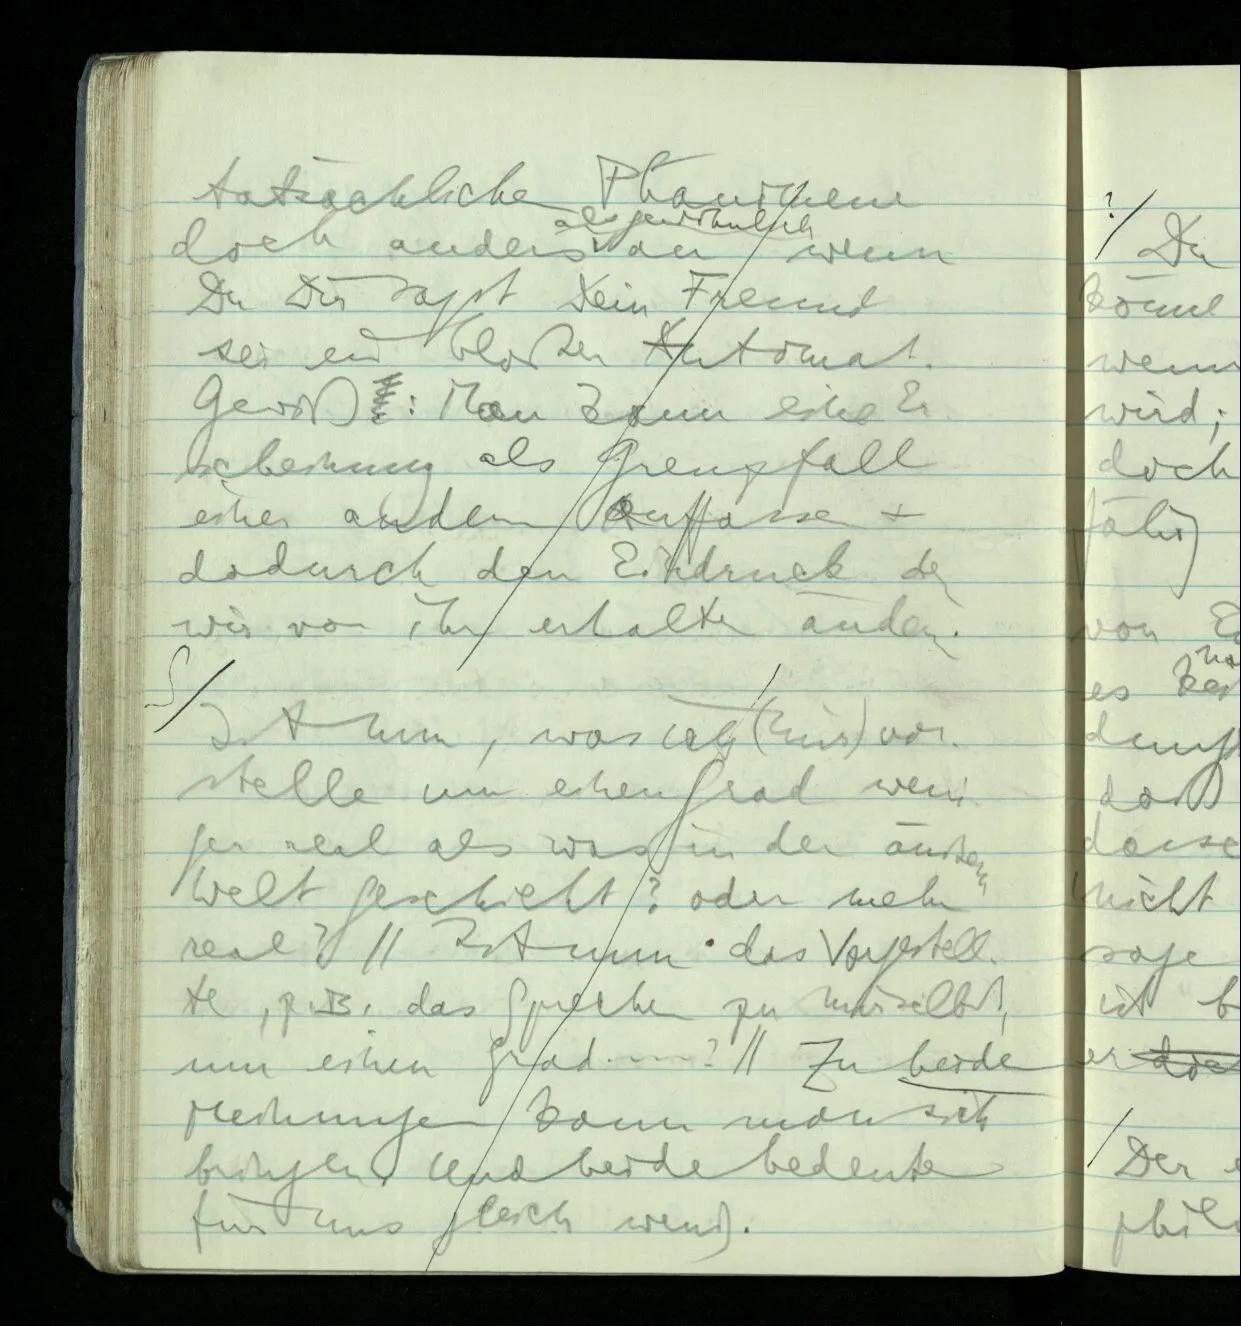 tatsächliche Phänomene
als gewöhnlich
doch anders an wenn
Du Dir sagst Dein Freund
sei ein bloßer Automat.
Gewiß: Man kann eine Er
scheinung als Grenzfall
einer andern auffassen +
dadurch den Eindruck den
wir von ihr erhalten ändern.
S/
Ist nun, was ich (mir) vor-
stelle um einen Grad weni
ger real als was in der äußern
Welt geschieht? oder mehr
real? // Ist nun das Vorgestell-
te, z.B. das Sprechen zu mir selbst,
um einen Grad ....? // Zu beiden
Meinungen kann man sich
bringen. Und beide bedeuten
für uns gleich wenig.
?/ Du
könnt
wenn
wird;
doch
fähig
von
es
das
nicht
sage
ist b
er
/ Der e
phil